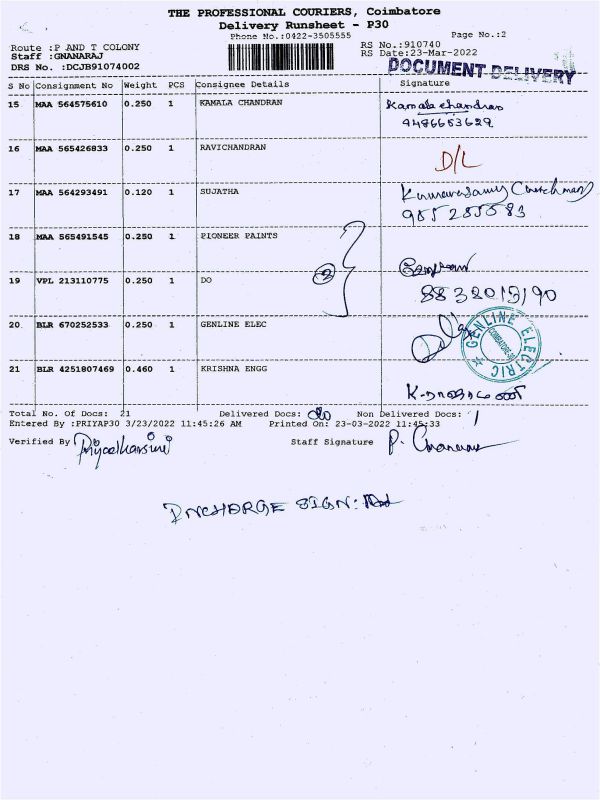 THE PROFESSIONAL COURIERS, Coimbatore
Delivery Runsheet - P30
Phone No.:0422-3505555
Page No.:2
Route :P AND T COLONY
RS No.:910740
Staff :GNANARAJ
RS Date:23-Mar-2022
DRS No. :DCJB91074002
DOCUMENT DELIVERY
S No Consignment No Weight PCS Consignee Details Signature
15 MAA 564575610 0.250 1 KAMALA CHANDRAN Kamala chandran
9486653629
16 MAA 565426833 0.250 1 RAVICHANDRAN D/L
17 MAA 564293491 0.120 1 SUJATHA
18 MAA 565491545 0.250 1 PIONEER PAINTS
19 VPL 213110775 0.250 1 DO
20 BLR 670252533 0.250 1 GENLINE ELEC
GENLINE ELECTRIC
21 BLR 4251807469 0.460 1 KRISHNA ENGG
Total No. Of Docs: 21 Delivered Docs: 20 Non Delivered Docs: 1
Entered By :PRIYAP30 3/23/2022 11:45:26 AM Printed On: 23-03-2022 11:45:33
Verified By Priyadharsini Staff Signature P. Gnanaraj
INCHARGE SIGN: